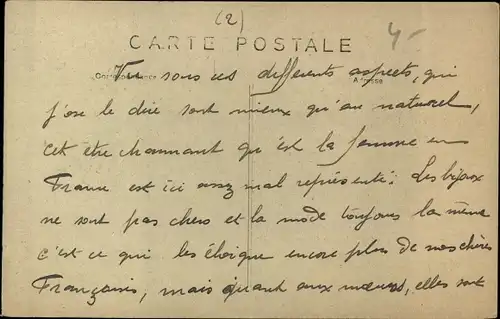 (2)
4-
CARTE POSTALE
Correspondance
Adresse
Vu sous ces differents aspects, qui
j'ose le dire sont mieux qu'au naturel,
cet etre charmant qu'est la femme en
France est ici assez mal représenté: Les bijoux
ne sont pas chers et la mode toujours la même
c'est ce qui les éloigne encore plus de nos chères
Françaises, mais quant aux mœurs, elles sont